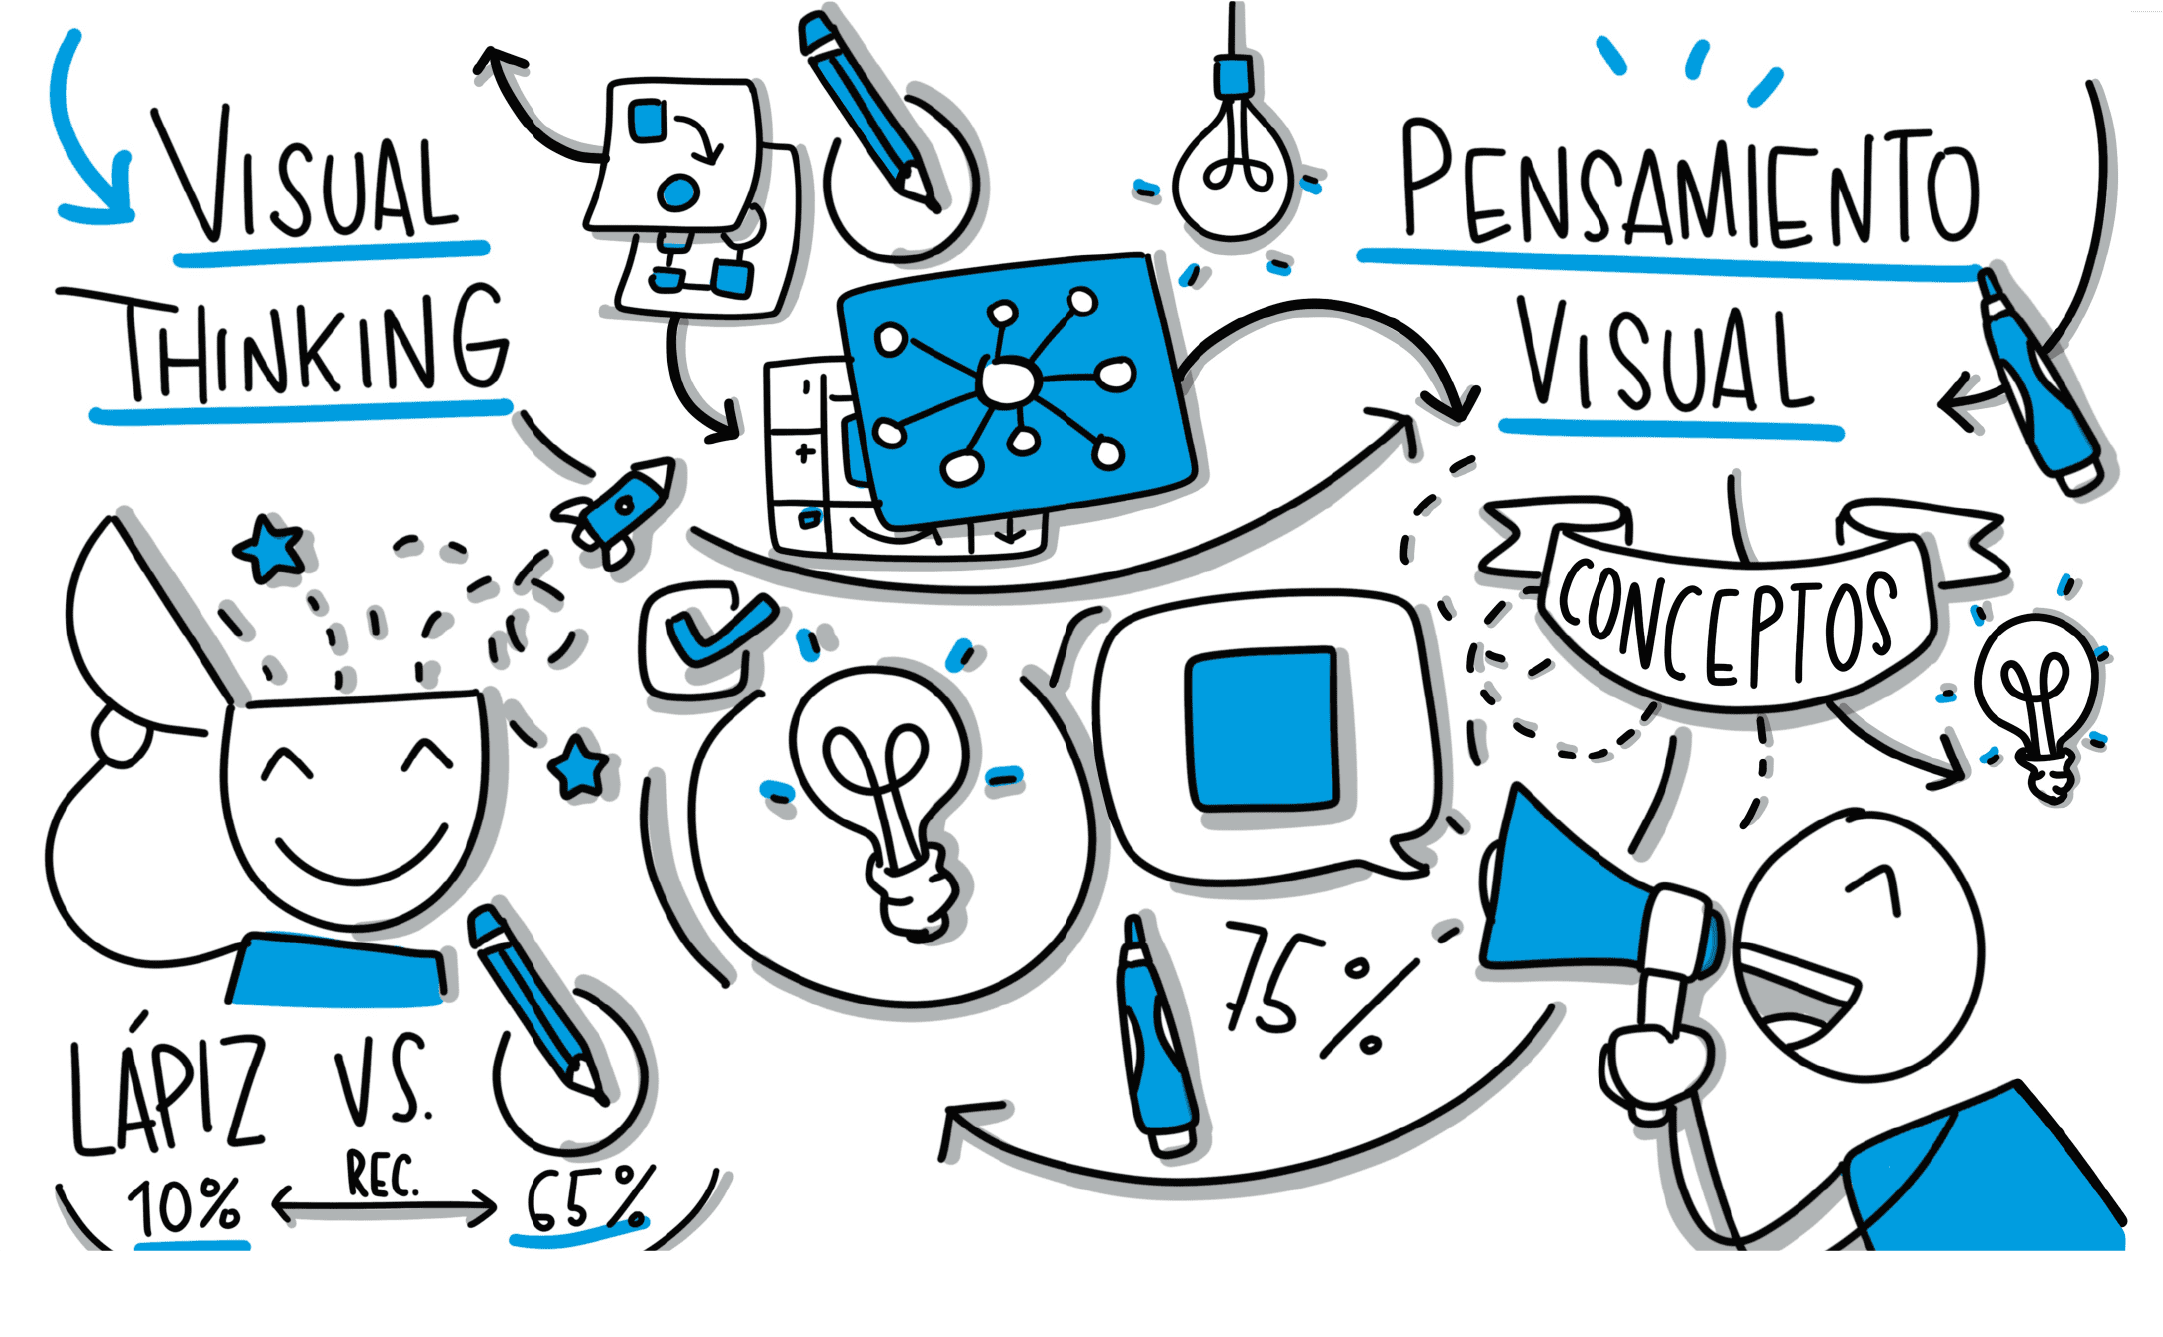 VISUAL
THINKING
PENSAMIENTO
VISUAL
CONCEPTOS
75%
LÁPIZ VS.
REC.
10% 65%